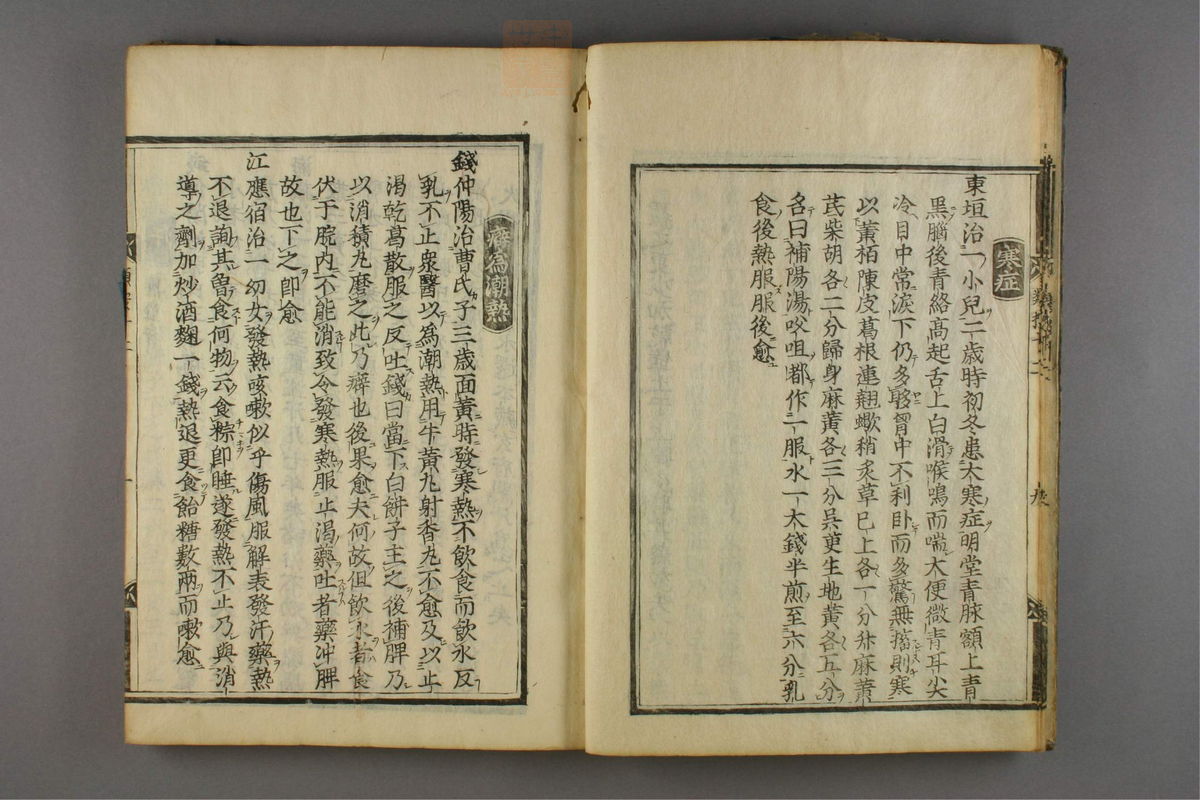 寒症
東垣治一小兒二歲時初冬患大寒症明堂青脉額上青
黑腦後青絡高起舌上白滑喉鳴而喘大便微青耳尖
冷目中常淚下仍多眵胷中不利卧而多驚無搐則寒
以黃栢陳皮葛根連翹蠍稍炙草已上各一分升麻黃
芪柴胡各二分歸身麻黃各三分吳萸生地黃各五分
名曰補陽湯㕮咀都作一服水一大錢半煎至六分乳
食後熱服服後愈
癖為潮熱
錢仲陽治曹氏子三歲面黃時發寒熱不飲食而飲水反
乳不止衆醫以為潮熱用牛黃丸射香丸不愈及以止
渴乾葛散服之反吐錢曰當下白餅子主之後補脾乃
以消積丸磨之此乃癖也後果愈夫何故但飲水者食
伏于脘內不能消致令發寒熱服止渴藥吐者藥冲脾
故也下之即愈
江應宿治一幼女發熱咳嗽似乎傷風服解表發汗藥熱
不退詢其曾食何物云食粽即睡遂發熱不止乃與消
導之劑加炒酒麴一錢熱退更食飴糖數兩而嗽愈